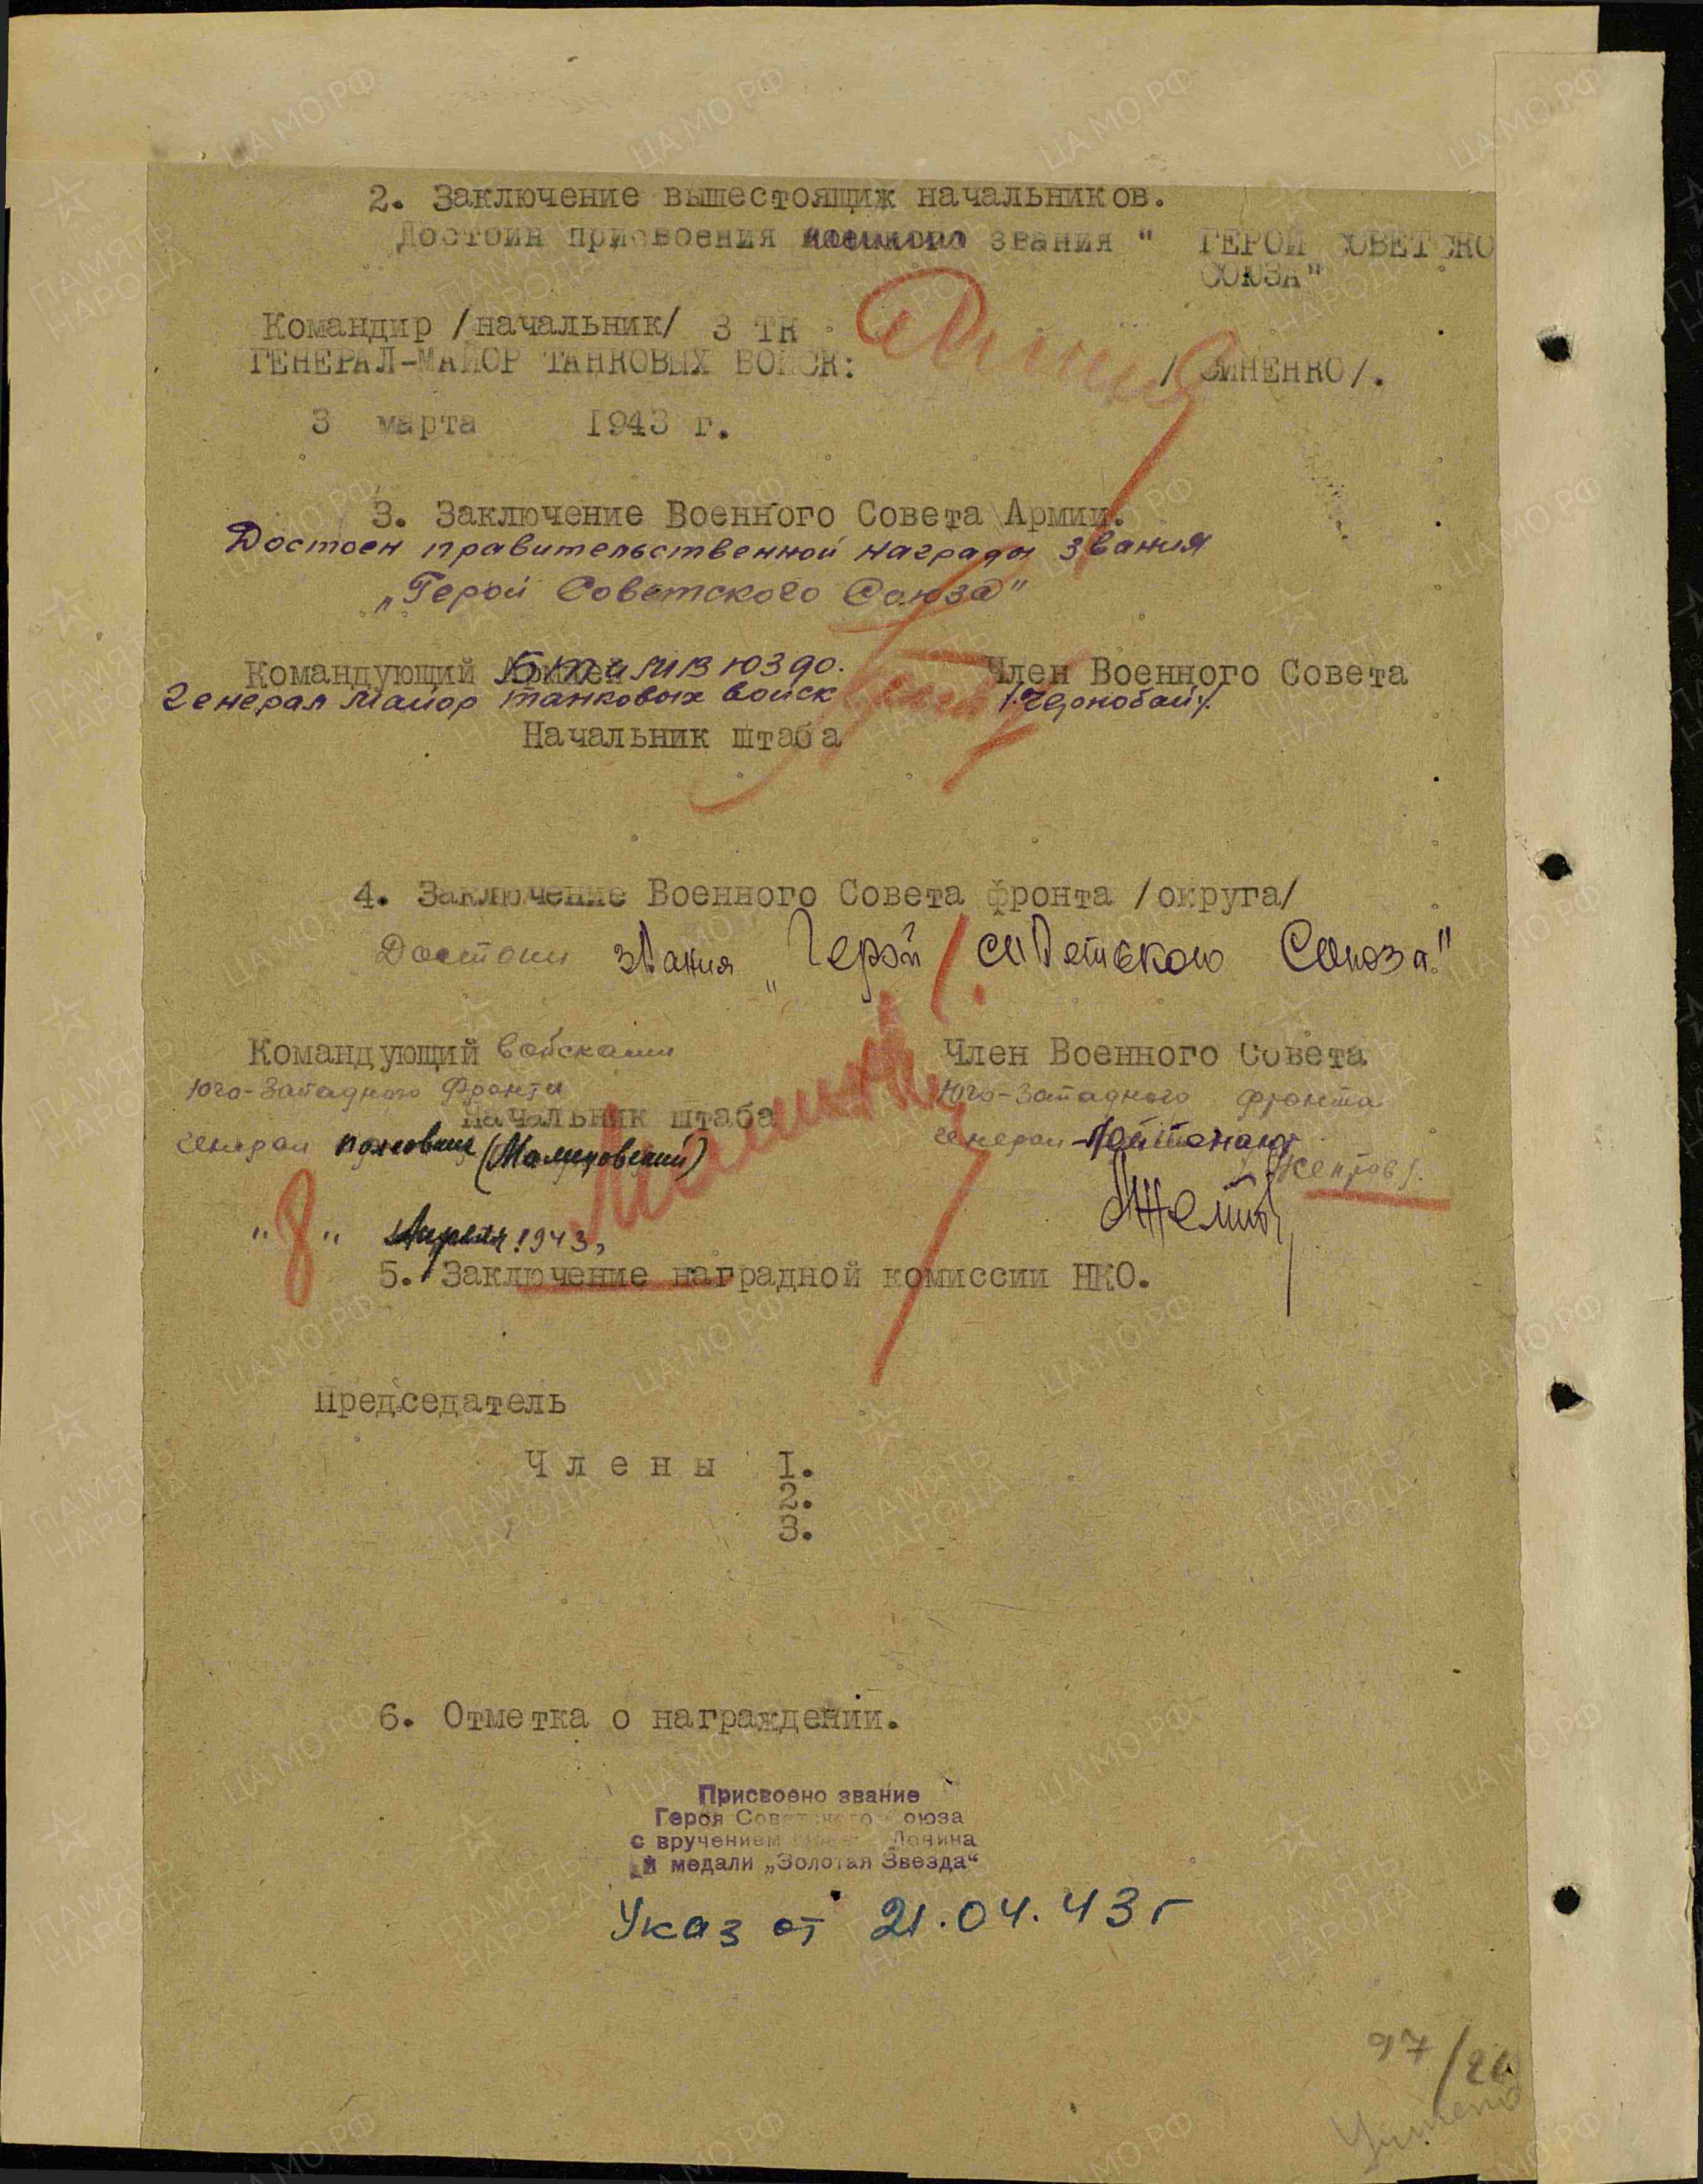 2. Заключение вышестоящиж начальников.
Достоин присвоения звания " ГЕРОЙ СОВЕТСКО
СОЮЗА"
Командир /начальник/ 3 ТК
ГЕНЕРАЛ-МАЙОР ТАНКОВЫХ ВОЙСК: / СИНЕНКО/.
3 марта 1943 г.
3. Заключение Военного Совета Армии.
Достоен правительственной награды звания
„Герой Советского Союза"
Командующий БТ и МВ ЮЗФ. Член Военного Совета
Генерал Майор танковых войск /Чернобай/
Начальник штаба
4. Заключение Военного Совета фронта /округа/
Достоин звания „Герой Советского Союза."
Командующий войсками Член Военного Совета
Юго-Западного Фронта Юго-Западного фронта
Начальник штаба
генерал полковник (Малиновский) генерал-лейтенант
Желтов).
"8" Апреля 1943г
5. Заключение наградной комиссии НКО.
Председатель
Члены I.
2.
3.
6. Отметка о награждении.
Присвоено звание
Героя Советского Союза
с вручением Ленина
и медали „Золотая Звезда“
Указ от 21.04.43 г
97/
ЦАМО.РФ
ПАМЯТЬ
НАРОДА